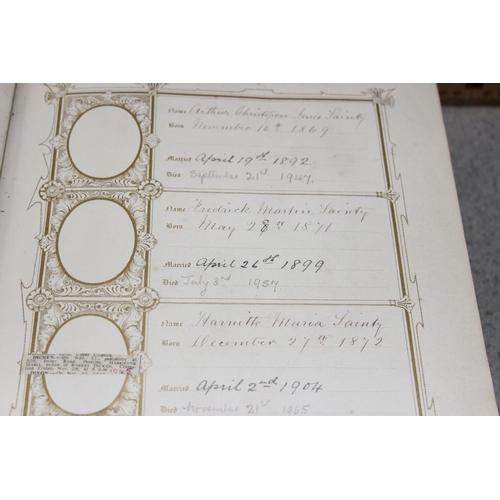 Name Arthur Christopher James Sainty
Born November 16th 1869
Married April 19th 1892
Died September 21st 1947.
Name Fredrick Martin Sainty
Born May 28th 1871
Married April 26th 1899
Died July 3rd 1957
Name Harriette Maria Sainty
Born December 27th 1872
Married April 2nd 1904
Died November 21st 1965